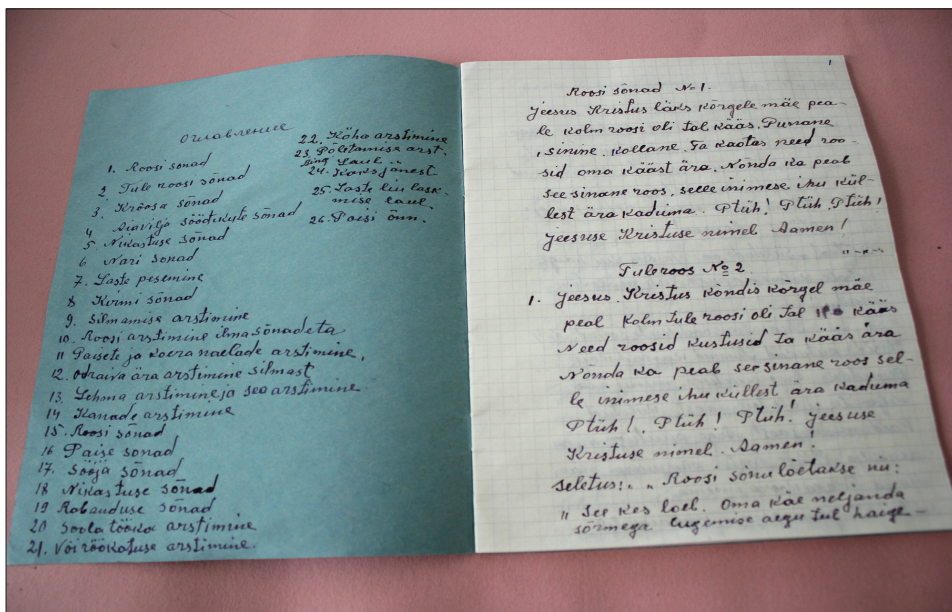 Оглавление
1. Roosi sõnad
2 Tule roosi sõnad
3. Krõosa sõnad
4 Aiavilja söödikute sõnad
5. Nikastuse sõnad
6 Nari sõnad
7. Laste pesemine
8 Kirmi sõnad
9. Silmamise arstimine
10. Roosi arstimine ilma sõnadeta
11 Paisete ja koera naelade arstimine,
12. odraiva ära arstimine silmast
13. Lehma arstimine ja sea arstimine.
14. Kanade arstimine
15. Roosi sõnad
16 Paise sõnad
17. Sööja sõnad
18 Nikastuse sõnad
19 Rabanduse sõnad
20 Soola tööka arstimine
21. Või röökatuse arstimine.
22. Köha arstimine
23. Põletamise arst.
ning Laul „
24. Karsjänest
25. Laste liu lask-
mise laul.
26. Paisi õnn.
1
Roosi sõnad № 1.
Jeesus Kristus läks kõrgele mäe pea-
le kolm roosi oli tal kääs. Punane
, sinine, kollane. Ta kaotas need roo-
sid oma kääst ära. Nõnda ka peab
see sinane roos, selle inimese ihu kül-
lest ära kaduma. Ptüh! Ptüh. Ptüh!
Jeesuse Kristuse nimel Aamen!
Tuleroos № 2.
1. Jeesus Kristus kõndis kõrgel mäe
peal kolm tule roosi oli tal kääs
Need roosid kustusid ta kääs ära
Nõnda ka peab see sinane roos sel-
le inimese ihu küllest ära kaduma
Ptüh!. Ptüh! Ptüh! Jeesuse
Kristuse nimel. Aamen!
Seletus: „ Roosi sõnu lõetakse nii:
„ See kes loeb. Oma käe neljanda
sõrmega lugemise aegu teeb haige-